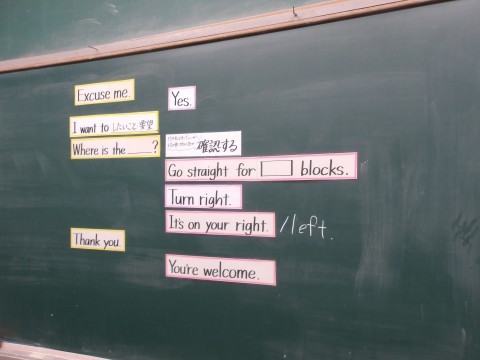 Excuse me.
Yes.
I want to したいこと・要望
Where is the ____?
確認する
Go straight for □ blocks.
Turn right.
It's on your right. /left.
Thank you.
You're welcome.